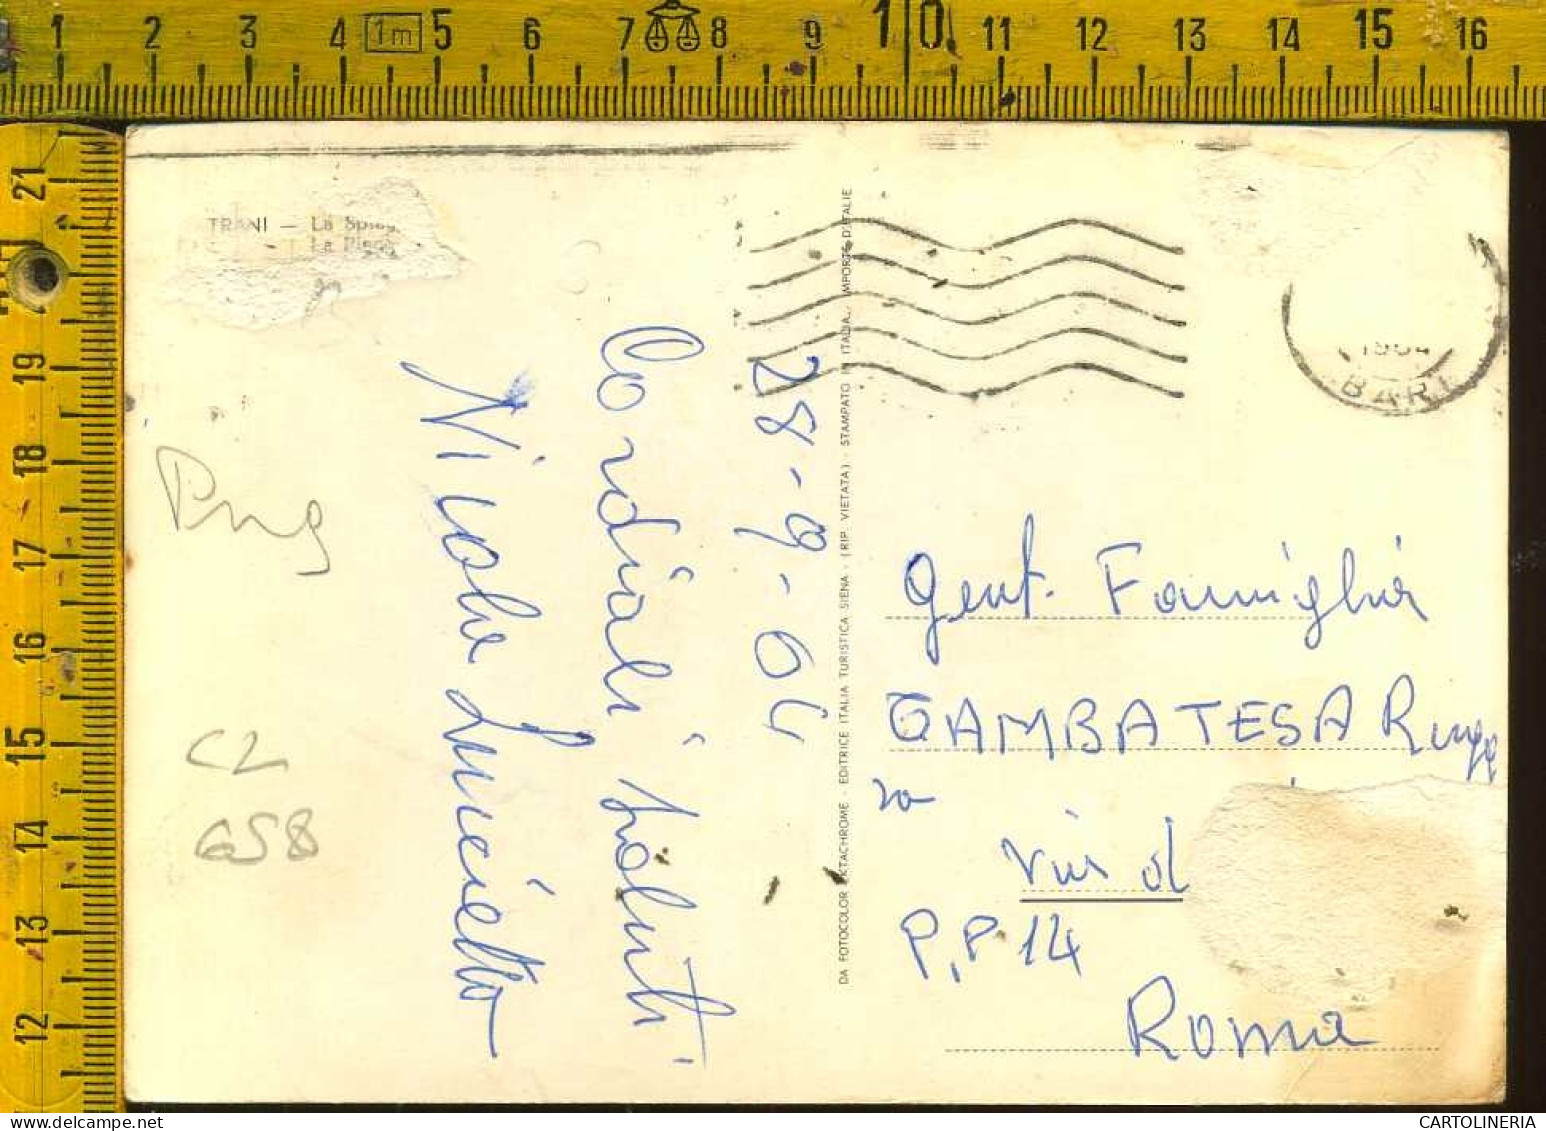 1 2 3 4 1m 5 6 7 8 9 10 11 12 13 14 15 16
21
19
18
17
16
15
14
13
12
TRANI — La
La
28-9-64
Cordiali saluti
Nicola Lucietta
Png
C2
658
DA FOTOCOLOR EKTACHROME - EDITRICE ITALIA TURISTICA SIENA - (RIP. VIETATA) - STAMPATO IN ITALIA - IMPORTÉ D'ITALIE
1964
BARI
Gent. Famiglia
GAMBATESA Rugge
ro
Via d
P.P 14
Roma
CARTOLINERIA